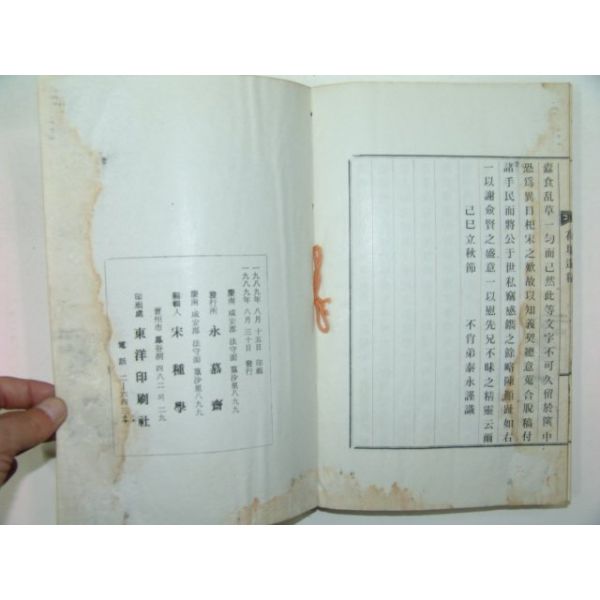 蠧食乱草一勻而已然此等文字不可久留於篋中
恐爲異日杞宋之歎故以知義契纏意蒐合脫稿付
諸手民而將公于世私竊感鐫之餘略陳顚趾如右
一以謝僉賢之盛意一以慰先兄不昧之精靈云爾
己巳立秋節
不肖弟泰永謹識
遺稿
一九八九年 八月 十五日 印刷
一九八九年 八月 三十日 發行
慶南 咸安郡 法守面 篁沙里 八九九
發行所 永慕齋
慶南 咸安郡 法守面 篁沙里 八九九
編輯人 宋種學
晋州市 鳳谷洞 四八二의二九
印刷處 東洋印刷社
電話